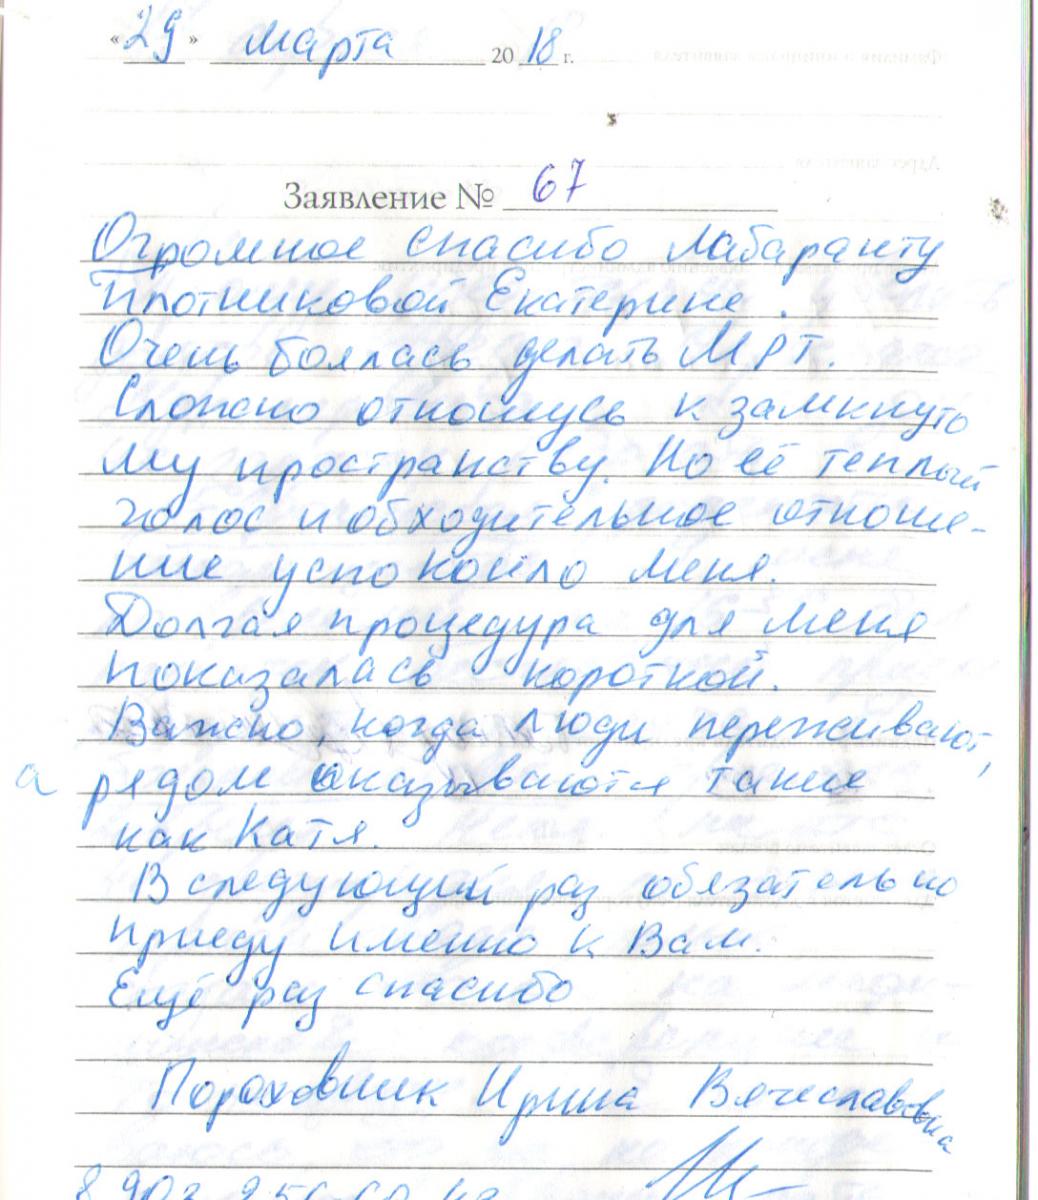 «29» марта 2018 г.
Заявление № 67
Огромное спасибо лабаранту
Плотниковой Екатерине.
Очень боялась делать МРТ.
Сложно отношусь к замкнуто
му пространству. Но её теплый
голос и обходительное отноше-
ние успокоило меня.
Долгая процедура для меня
показалась короткой.
Важно, когда люди переживают,
а рядом оказываются такие
как Катя.
В следующий раз обязательно
приеду именно к Вам.
Ещё раз спасибо
Пороховник Ирина Вячеславовна